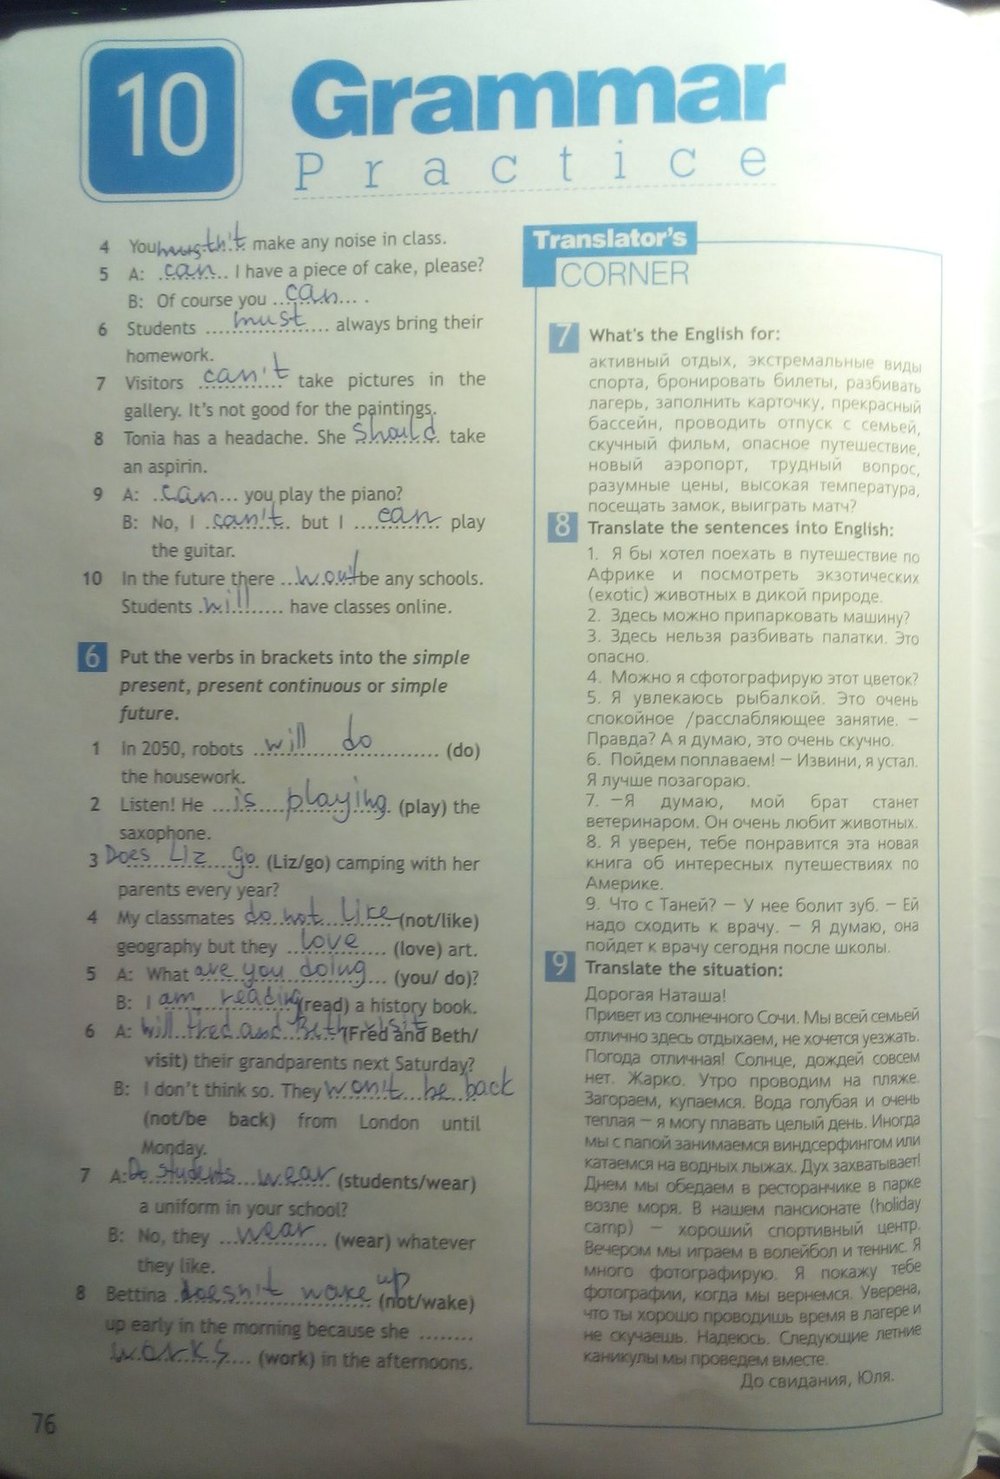 10
Grammar
Practice
4 You musth't make any noise in class.
5 A: can I have a piece of cake, please?
B: Of course you can .
6 Students must always bring their
homework.
7 Visitors can't take pictures in the
gallery. It's not good for the paintings.
8 Tonia has a headache. She should take
an aspirin.
9 A: can you play the piano?
B: No, I can't but I can play
the guitar.
10 In the future there wont be any schools.
Students will have classes online.
6 Put the verbs in brackets into the simple
present, present continuous or simple
future.
1 In 2050, robots will do (do)
the housework.
2 Listen! He is playing (play) the
saxophone.
3 Does Liz go (Liz/go) camping with her
parents every year?
4 My classmates do not like (not/like)
geography but they love (love) art.
5 A: What are you doing (you/ do)?
B: I am reading (read) a history book.
6 A: Will Fred and Beth visit (Fred and Beth/
visit) their grandparents next Saturday?
B: I don't think so. They won't be back
(not/be back) from London until
Monday.
7 A: Do students wear (students/wear)
a uniform in your school?
B: No, they wear (wear) whatever
they like.
8 Bettina doesn't wake up (not/wake)
up early in the morning because she ........
works (work) in the afternoons.
76
Translator's
CORNER
7 What's the English for:
активный отдых, экстремальные виды
спорта, бронировать билеты, разбивать
лагерь, заполнить карточку, прекрасный
бассейн, проводить отпуск с семьей,
скучный фильм, опасное путешествие,
новый аэропорт, трудный вопрос,
разумные цены, высокая температура,
посещать замок, выиграть матч?
8 Translate the sentences into English:
1. Я бы хотел поехать в путешествие по
Африке и посмотреть экзотических
(exotic) животных в дикой природе.
2. Здесь можно припарковать машину?
3. Здесь нельзя разбивать палатки. Это
опасно.
4. Можно я сфотографирую этот цветок?
5. Я увлекаюсь рыбалкой. Это очень
спокойное /расслабляющее занятие. –
Правда? А я думаю, это очень скучно.
6. Пойдем поплаваем! – Извини, я устал.
Я лучше позагораю.
7. –Я думаю, мой брат станет
ветеринаром. Он очень любит животных.
8. Я уверен, тебе понравится эта новая
книга об интересных путешествиях по
Америке.
9. Что с Таней? – У нее болит зуб. – Ей
надо сходить к врачу. – Я думаю, она
пойдет к врачу сегодня после школы.
9 Translate the situation:
Дорогая Наташа!
Привет из солнечного Сочи. Мы всей семьей
отлично здесь отдыхаем, не хочется уезжать.
Погода отличная! Солнце, дождей совсем
нет. Жарко. Утро проводим на пляже.
Загораем, купаемся. Вода голубая и очень
теплая – я могу плавать целый день. Иногда
мы с папой занимаемся виндсерфингом или
катаемся на водных лыжах. Дух захватывает!
Днем мы обедаем в ресторанчике в парке
возле моря. В нашем пансионате (holiday
camp) – хороший спортивный центр.
Вечером мы играем в волейбол и теннис. Я
много фотографирую. Я покажу тебе
фотографии, когда мы вернемся. Уверена,
что ты хорошо проводишь время в лагере и
не скучаешь. Надеюсь. Следующие летние
каникулы мы проведем вместе.
До свидания, Юля.